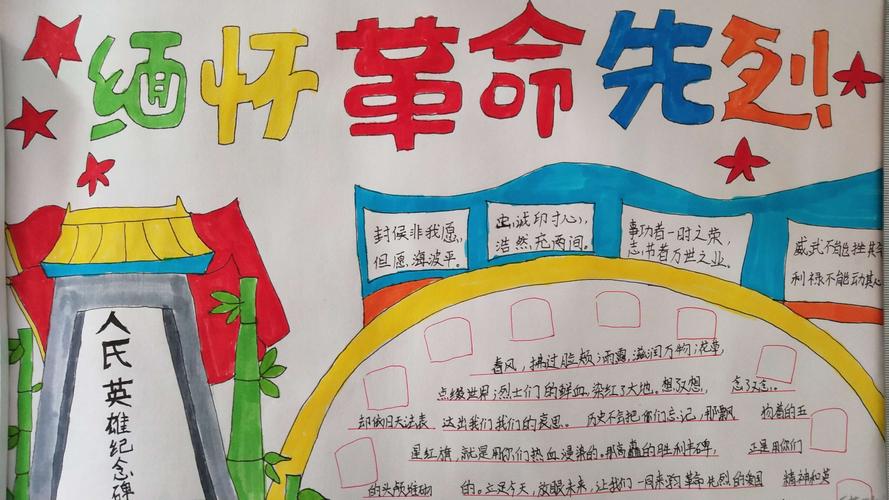 缅怀革命先烈
封候非我愿，
但愿海波平。
忠诚印寸心，
浩然充两间。
事功者一时之荣，
志节者万世之业。
威武不能挫其
利禄不能动其心
人民英雄纪念碑
春风，拂过脸颊；雨露，滋润万物；花草，
点缀世界；烈士们的鲜血，染红了大地。想了又想，忘了又忘。
却依旧无法表达出我们我们的哀思。历史不会把你们忘记，那飘扬着的五
星红旗，就是用你们热血浸染的。那高矗的胜利丰碑，正是用你们
的头颅堆砌的。立足今天，放眼未来，让我们一同来学习革命先烈的爱国精神和英